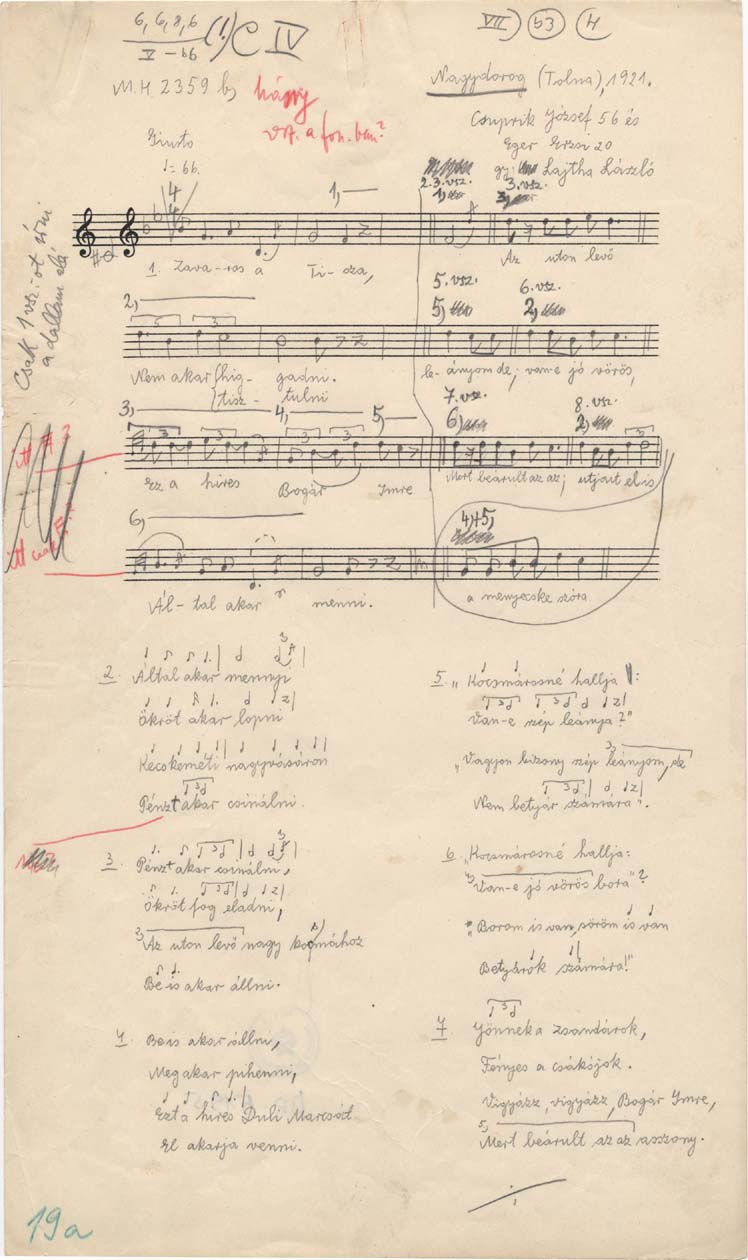 6, 6, 8, 6
V – b6
(1.) C IV
VII) b3 4
M.H. 2359 b)
hány
vsz. a fon. ban?
Nagydorog (Tolna), 1921.
Csuprik József 56 és
Eger Erzsi 20
gy: Lajtha László
Giusto
♩= 66.
Csak 1 vsz.-ot írni
a dallam alá
4
4
1,
2.3. vsz.
1,
3. vsz.
3,
1. Zava-ros a Ti-sza,
Az uton levő
2,
5. vsz.
5,
6. vsz.
2,
5
3
Nem akar hig-gadni.
tisz-tulni
le-ányom de; van-e jó vörös,
3,
4,
5,
7. vsz.
6,
8. vsz.
2,
3 3 3 3
3
Ez a hires Bogár Imre
Mert beárult az az; utjait el is
6,
4,+5,
Ál-tal akar menni.
a menyecske szóra
2. Által akar mennyi
Ökröt akar lopni
Kecskeméti nagyvásáron
Pénzt akar csinálni.
3. Pénzt akar csinálni,
Ökröt fog eladni,
Az uton levő nagy kocsmához
Be is akar állni.
4. Be is akar állni,
Meg akar pihenni,
Ezt a hires Duli Marcsát
El akarja venni.
5. „Kocsmárosné hallja:
Van-e szép leánya?"
„Vagyon bizony szép leányom, de
Nem betyár számára".
6. „Kocsmárosné hallja:
Van-e jó vörös bora"?
„Borom is van, söröm is van
Betyárok számára!"
7. Jönnek a zsandárok,
Fényes a csákójok.
Vigyázz, vigyázz, Bogár Imre,
Mert beárult az az asszony.
19a